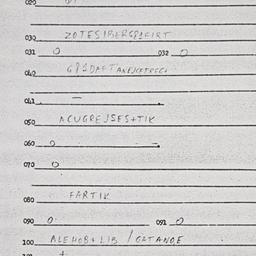 020
030 ZOTESIBERSPECIRT
031 0 032 0
040
041 —
050 ACUGREJSES+TIK
060 0 —
070 0
080 FARTIK
090 0 091 0
100 ALEHOB+LIB / GATANOE